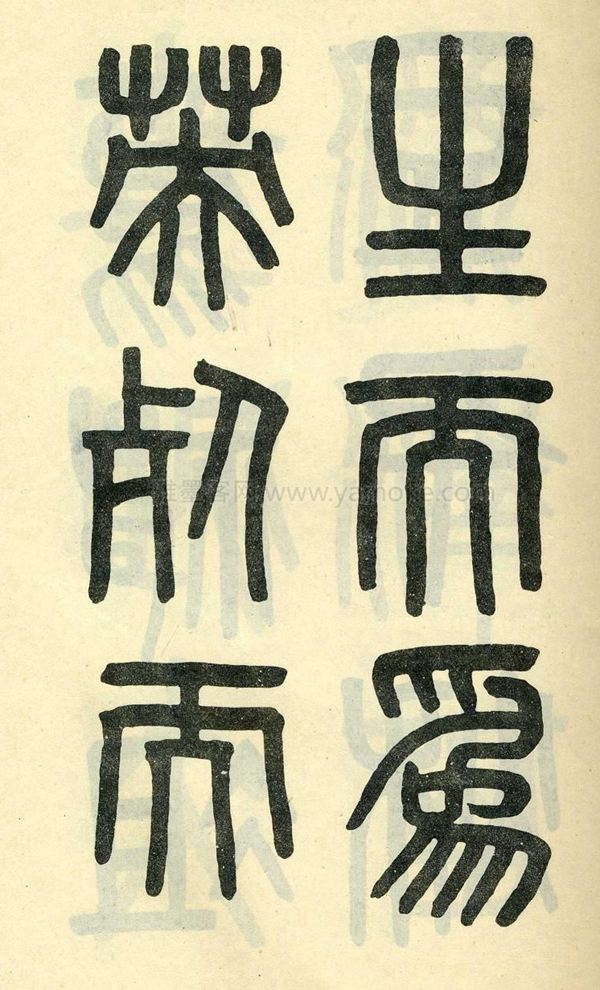 生而爲
英死而
雅墨客网 www.yamoke.com